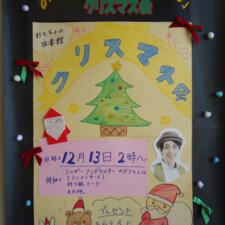 クリスマス会
おもちゃの
図書館
クリスマス会
日時：12月13日 2時〜
詳細：・シンガーソングライター
（ミニコンサート）
・折り紙コーナー
・その他。
プレゼント